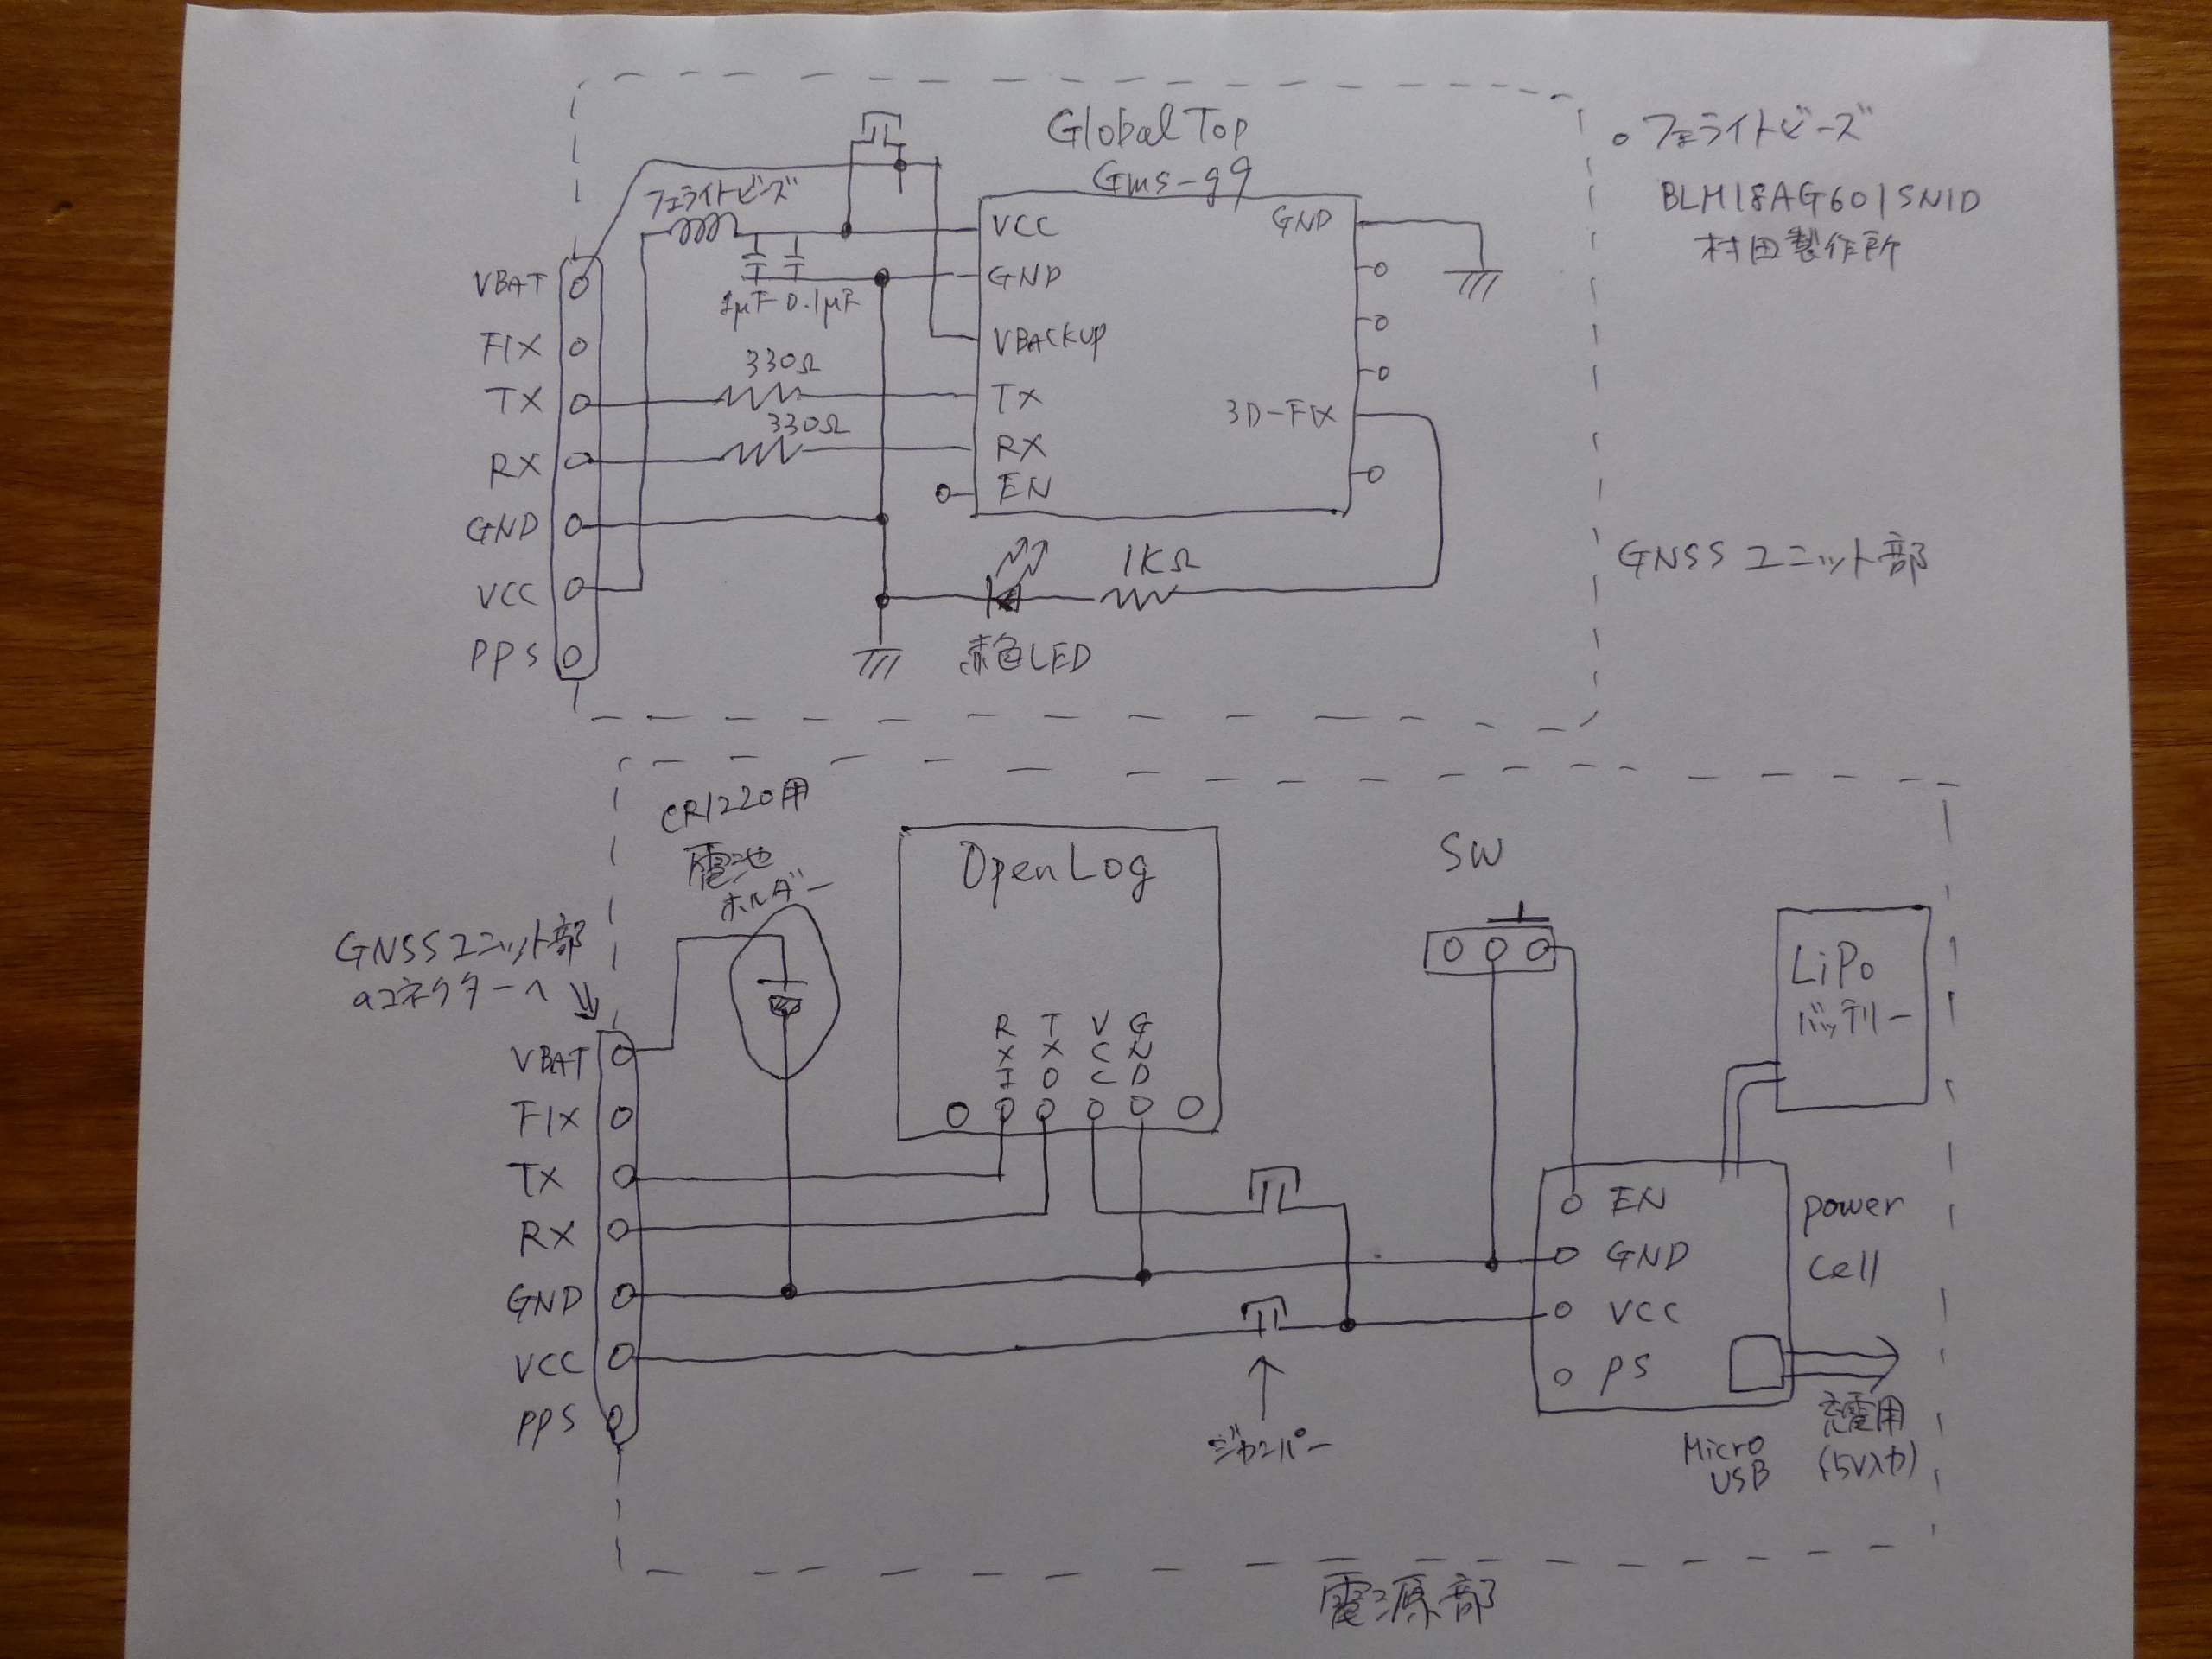 GlobalTop
Gms-g9
フェライトビーズ
VCC
GND
VBACKUP
TX
RX
EN
GND
3D-FIX
1μF 0.1μF
330Ω
330Ω
1KΩ
赤色LED
VBAT
FIX
TX
RX
GND
VCC
PPS
○フェライトビーズ
BLM18AG601SN1D
村田製作所
GNSSユニット部
CR1220用
電池
ホルダー
GNSSユニット部
のコネクターへ
VBAT
FIX
TX
RX
GND
VCC
PPS
OpenLog
RXI
TXO
VCC
GND
SW
LiPo
バッテリー
EN
GND
VCC
PS
power
cell
ジャンパー
Micro
USB
充電用
(5V入力)
電源部